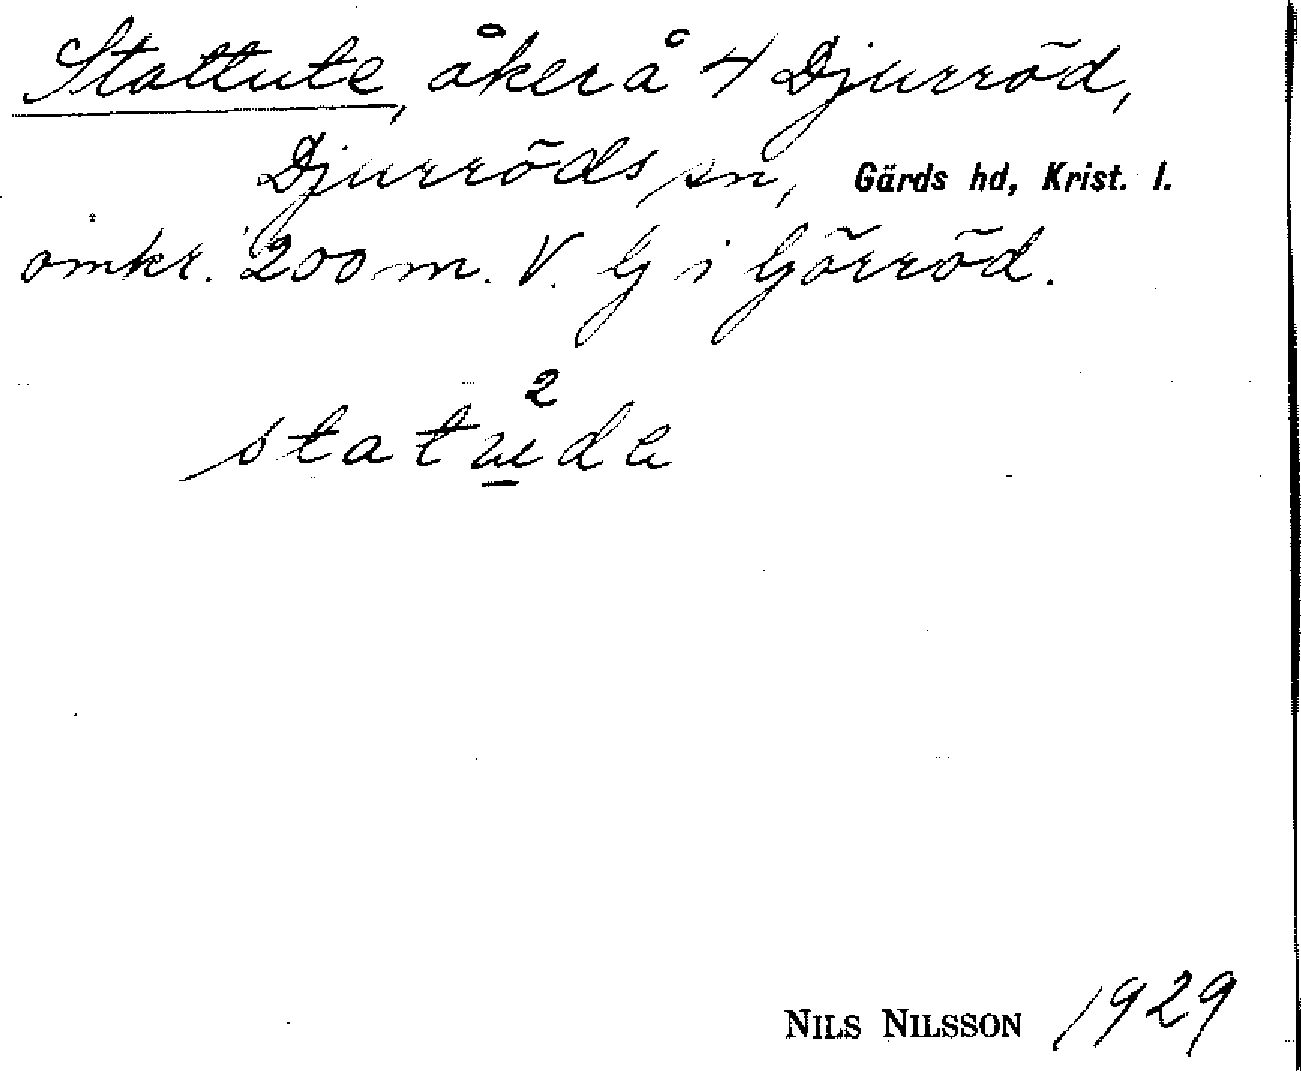 Stattute, åker å 4 Djurröd,
Djurröds sn, Gärds hd, Krist. l.
omkr. 200 m. V. G i Görröd.
statude
NILS NILSSON 1929